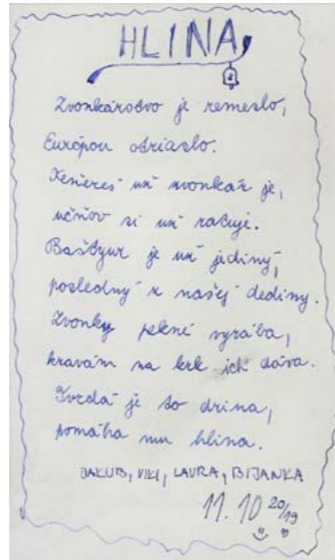 HLINA
Zvonkárstvo je remeslo,
Európou otriaslo.
už zvonkár je,
učňov si už ratuje.
Baštzur je už jediný,
posledný z našej dediny.
Zvonky pekné vyrába,
kravám na krk ich dáva.
Tvrdá je to drina,
pomáha mu hlina.
JAKUB, VIKI, LAURA, BIJANKA
11. 10 20/19